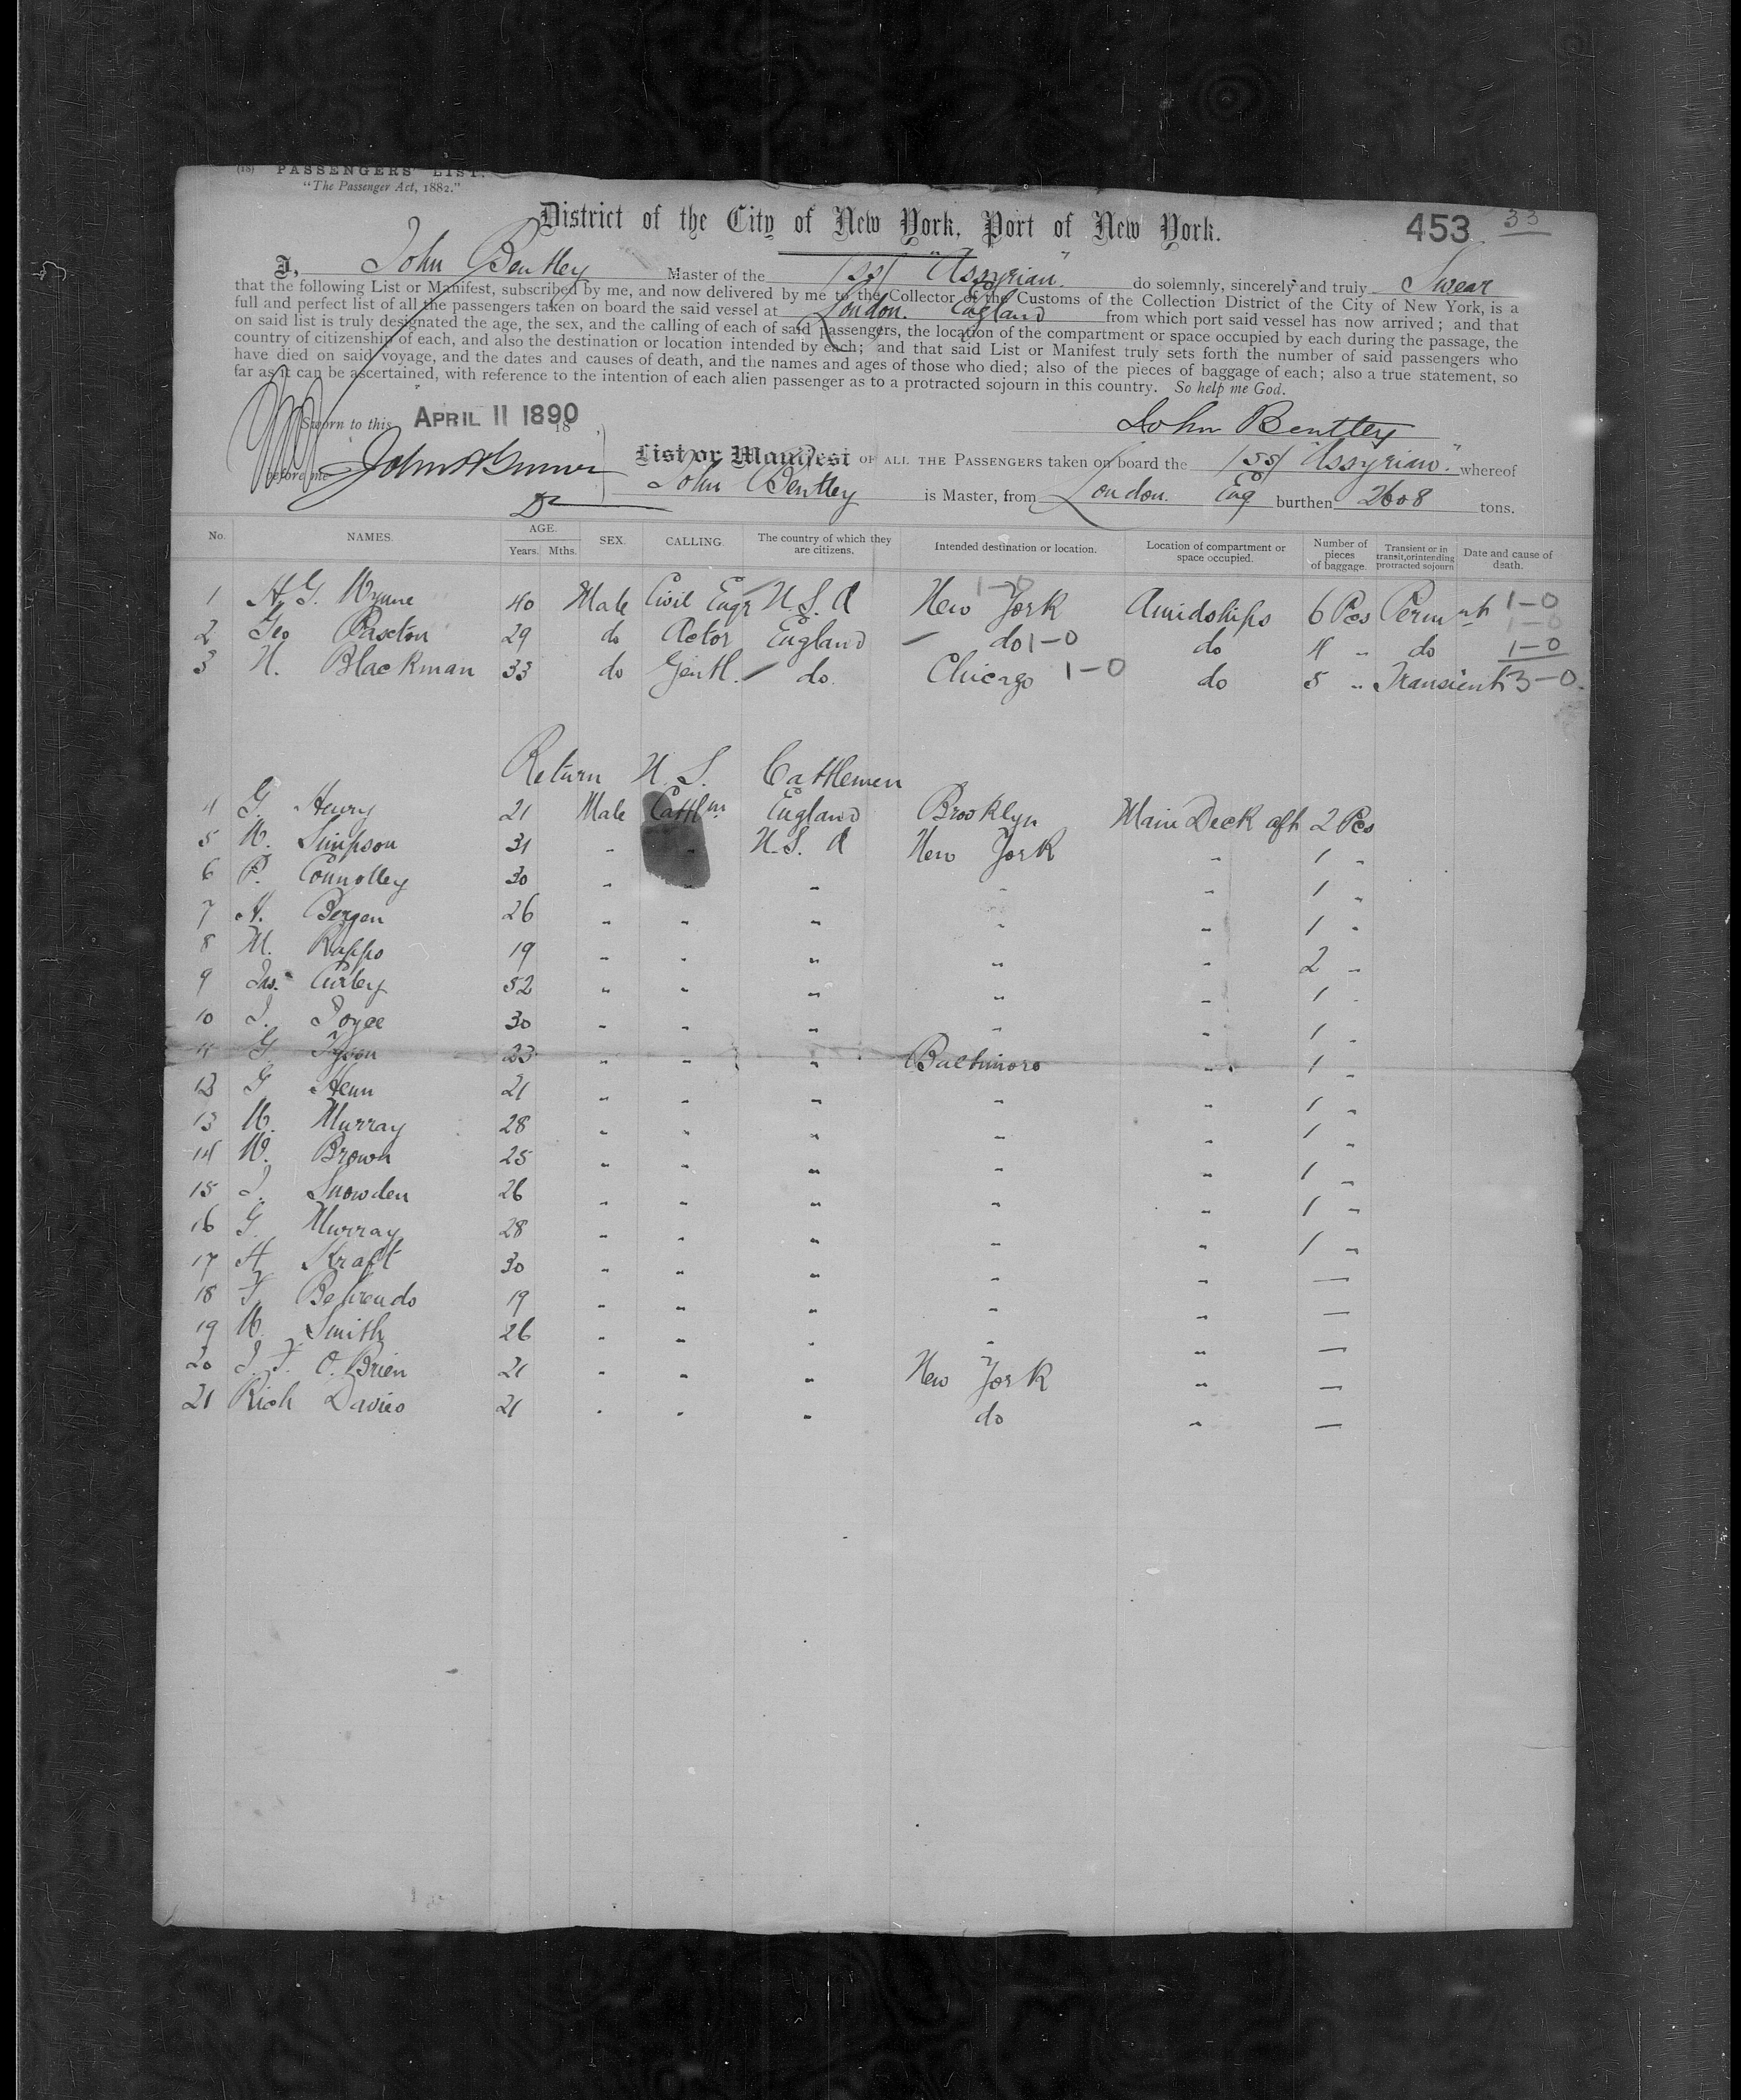 (18) PASSENGERS' LIST.
"The Passenger Act, 1882."
District of the City of New York, Port of New York.
453 33
I, John Bentley Master of the /SS/ "Assyrian" do solemnly, sincerely and truly Swear
that the following List or Manifest, subscribed by me, and now delivered by me to the Collector of the Customs of the Collection District of the City of New York, is a
full and perfect list of all the passengers taken on board the said vessel at London. England from which port said vessel has now arrived; and that
on said list is truly designated the age, the sex, and the calling of each of said passengers, the location of the compartment or space occupied by each during the passage, the
country of citizenship of each, and also the destination or location intended by each; and that said List or Manifest truly sets forth the number of said passengers who
have died on said voyage, and the dates and causes of death, and the names and ages of those who died; also of the pieces of baggage of each; also a true statement, so
far as it can be ascertained, with reference to the intention of each alien passenger as to a protracted sojourn in this country. So help me God.
Sworn to this APRIL 11 1890 18 ,
John Bentley
before me
List or Manifest OF ALL THE PASSENGERS taken on board the /SS/ "Assyrian" whereof
John Bentley is Master, from London. Eng burthen 2608 tons.
No. NAMES. AGE. Years. Mths. SEX. CALLING. The country of which they are citizens. Intended destination or location. Location of compartment or space occupied. Number of pieces of baggage. Transient or in transit, or intending protracted sojourn Date and cause of death.
1 H. G. Wynne 40 Male Civil Engr U.S. A New York 1-0 Amidships 6 Pcs Permnt 1-0
1-0
2 Geo Paxton 29 do Actor England do 1-0 do 4 " do 1-0
3 H. Blackman 33 do Gentl. do. Chicago 1-0 do 5 " Transient 3-0.
Return U. S. Cattlemen
4 G. Henry 21 Male Cattlm England Brooklyn Main Deck aft 2 Pcs
5 W. Simpson 31 " " U.S. A New York " 1 "
6 P. Connolley 30 " " " " " 1 "
7 H. Bergen 26 " " " " " 1 "
8 M. Rapps 19 " " " " " 2 "
9 Jas. Curley 52 " " " " " 1 "
10 J. Joyce 30 " " " " " 1 "
11 G. Tyson 23 " " " Baltimore " 1 "
12 G Henn 21 " " " " " 1 "
13 W. Murray 28 " " " " " 1 "
14 W. Brown 25 " " " " " 1 "
15 J. Snowden 26 " " " " " 1 "
16 G. Murray 28 " " " " " 1 "
17 H Kraft 30 " " " " " —
18 F Behrends 19 " " " " " —
19 W. Smith 26 " " " " " —
20 J. F. O.Brien 21 " " " New York " —
21 Rich Davies 21 " " " do " —